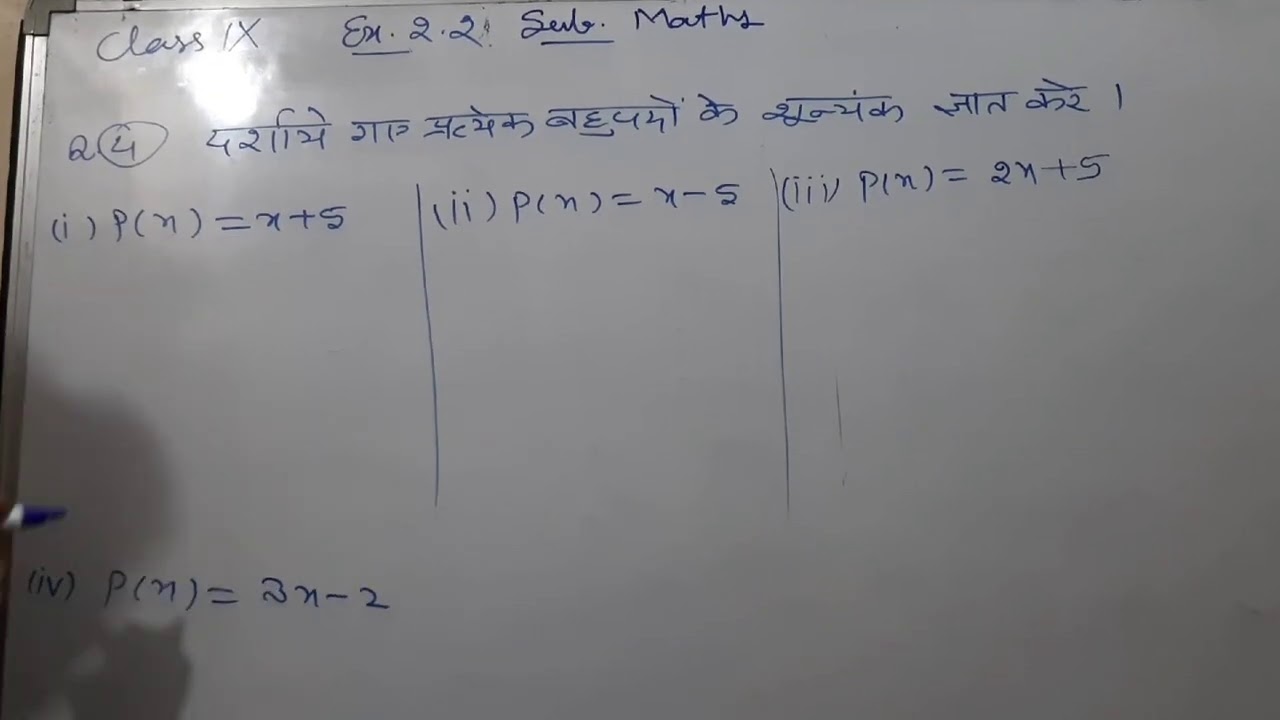 Class IX Ex. 2.2 Sub. Maths
2 (4) दर्शाये गए प्रत्येक बहुपदों के शून्यंक ज्ञात करे ।
(i) P(x) = x+5 (ii) P(x) = x-5 (iii) P(x) = 2x+5
(iv) P(x) = 3x-2